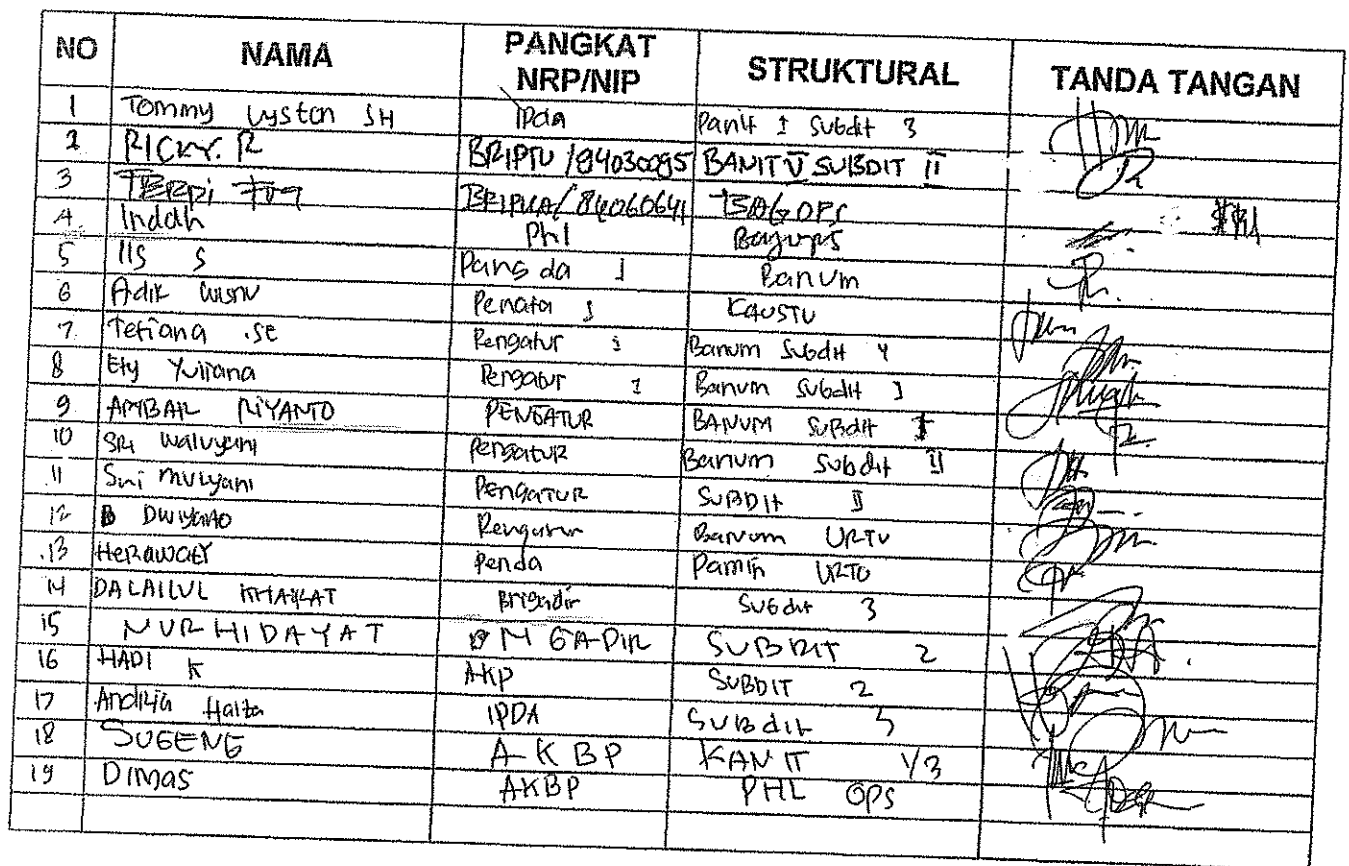 NO NAMA PANGKAT NRP/NIP STRUKTURAL TANDA TANGAN
1 Tommy Lyston SH IPda Panit I Subdit 3
2 RICKY. R BRIPTU /84030095 BANIT V SUBDIT II
3 BRIPKA/ 84060641 BAGOPS
4 Indah Phl Bagops
5 IIS S Pengda I Banum
6 Adik Wisnu Penata I KAUSTU
7. Tefiana .SE Pengatur I Banum Subdit 4
8 Ety Yuliana Pengatur I Banum Subdit I
9 AMBAR RIYANTO PENGATUR BANUM SUBdit I
10 SRI Waluyani Pengatur Banum Subdit II
11 Sri Mulyani Pengatur SUBDIt II
12 B Dwiyanto Pengatur Banum URTU
13 HERAWATY Penda Pamin URTU
14 DALAILUL KHAIRAT Brigadir Subdit 3
15 NUR HIDAYAT SUBDIT 2
16 HADI K AKP SUBDIT 2
17 Andika IPDA SUBdit 5
18 SUGENG AKBP KANIT 1/3
19 Dimas AKBP PHL OPS